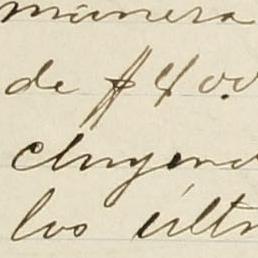 manera
de $400
cluyend
los últi